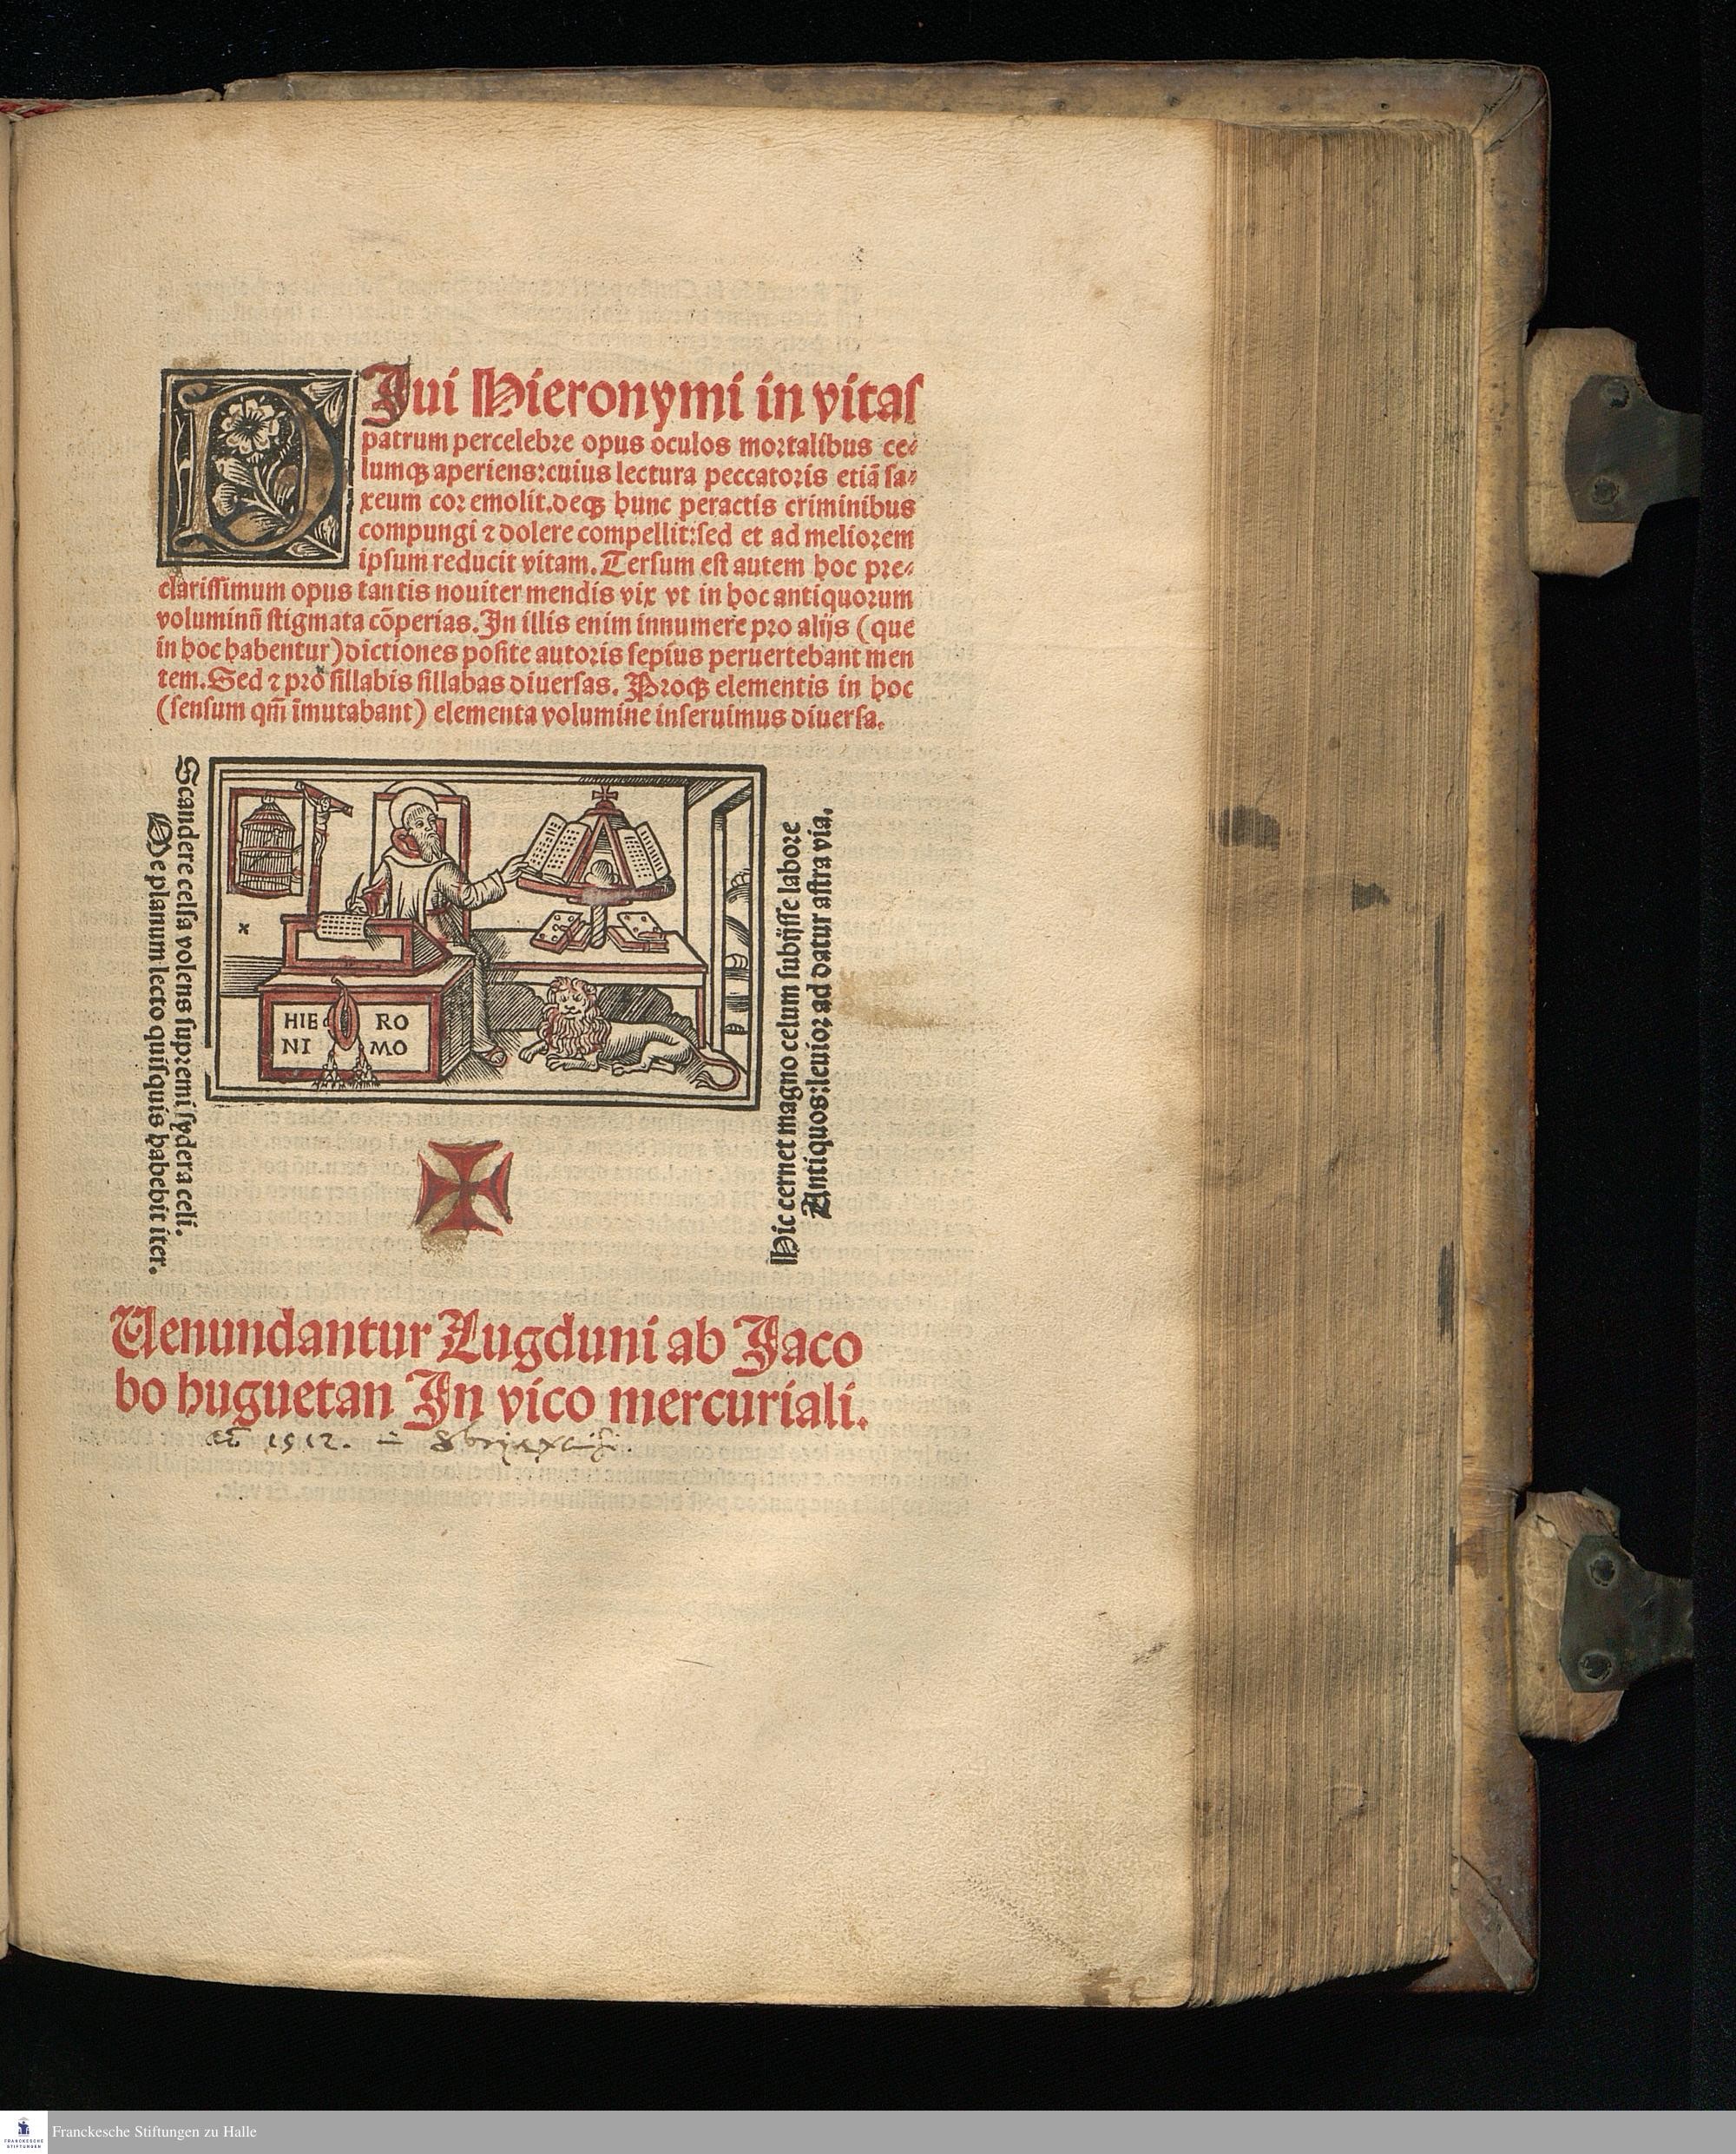 DIui Hieronymi in vitas
patrum percelebre opus oculos mortalibus ce⸗
lumqꝫ aperiens:cuius lectura peccatoris etiã sa⸗
xeum cor emolit.deqꝫ hunc peractis criminibus
compungi ⁊ dolere compellit:sed et ad meliorem
ipsum reducit vitam. Tersum est autem hoc pre⸗
clarissimum opus tantis nouiter mendis vix vt in hoc antiquorum
voluminũ stigmata cõperias. In illis enim innumere pro alijs (que
in hoc habentur) dictiones posite autoris sepius peruertebant men
tem. Sed ⁊ pro sillabis sillabas diuersas. Proqꝫ elementis in hoc
(sensum qm̃ ĩmutabant) elementa volumine inseruimus diuersa.
Scandere celsa volens supremi sydera celi.
De planum lecto quisquis habebit iter.
HIE RO
NI MO
Hic cernet magno celum subijsse labore
Antiquos:leuior ad datur astra via.
Uenundantur Lugduni ab Jaco
bo huguetan In vico mercuriali.
1512.
FRANCKESCHE
STIFTUNGEN
Franckesche Stiftungen zu Halle